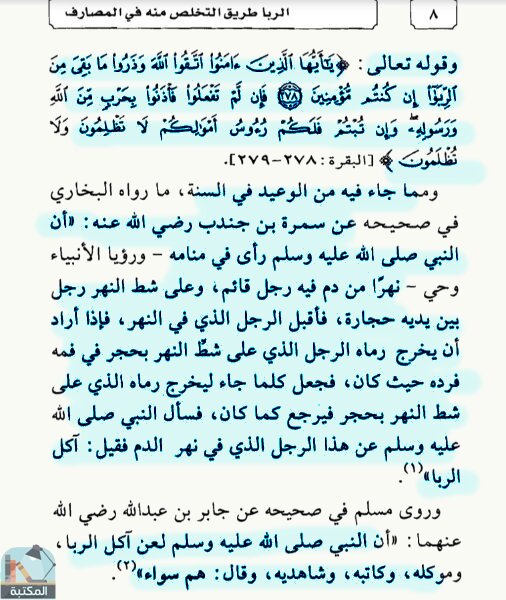 ٨
الربا طريق التخلص منه في المصارف
وقوله تعالى: ﴿يَٰٓأَيُّهَا ٱلَّذِينَ ءَامَنُوا۟ ٱتَّقُوا۟ ٱللَّهَ وَذَرُوا۟ مَا بَقِىَ مِنَ
ٱلرِّبَوٰٓا۟ إِن كُنتُم مُّؤْمِنِينَ ٢٧٨ فَإِن لَّمْ تَفْعَلُوا۟ فَأْذَنُوا۟ بِحَرْبٍ مِّنَ ٱللَّهِ
وَرَسُولِهِۦ ۖ وَإِن تُبْتُمْ فَلَكُمْ رُءُوسُ أَمْوَٰلِكُمْ لَا تَظْلِمُونَ وَلَا
تُظْلَمُونَ﴾ [البقرة: ٢٧٨-٢٧٩].
ومما جاء فيه من الوعيد في السنة، ما رواه البخاري
في صحيحه عن سمرة بن جندب رضي الله عنه: «أن
النبي صلى الله عليه وسلم رأى في منامه - ورؤيا الأنبياء
وحي - نهرًا من دم فيه رجل قائم، وعلى شط النهر رجل
بين يديه حجارة، فأقبل الرجل الذي في النهر، فإذا أراد
أن يخرج رماه الرجل الذي على شطِّ النهر بحجر في فمه
فرده حيث كان، فجعل كلما جاء ليخرج رماه الذي على
شط النهر بحجر فيرجع كما كان، فسأل النبي صلى الله
عليه وسلم عن هذا الرجل الذي في نهر الدم فقيل: آكل
الربا»(١).
وروى مسلم في صحيحه عن جابر بن عبدالله رضي الله
عنهما: «أن النبي صلى الله عليه وسلم لعن آكل الربا،
وموكله، وكاتبه، وشاهديه، وقال: هم سواء»(٢).
المكتبة